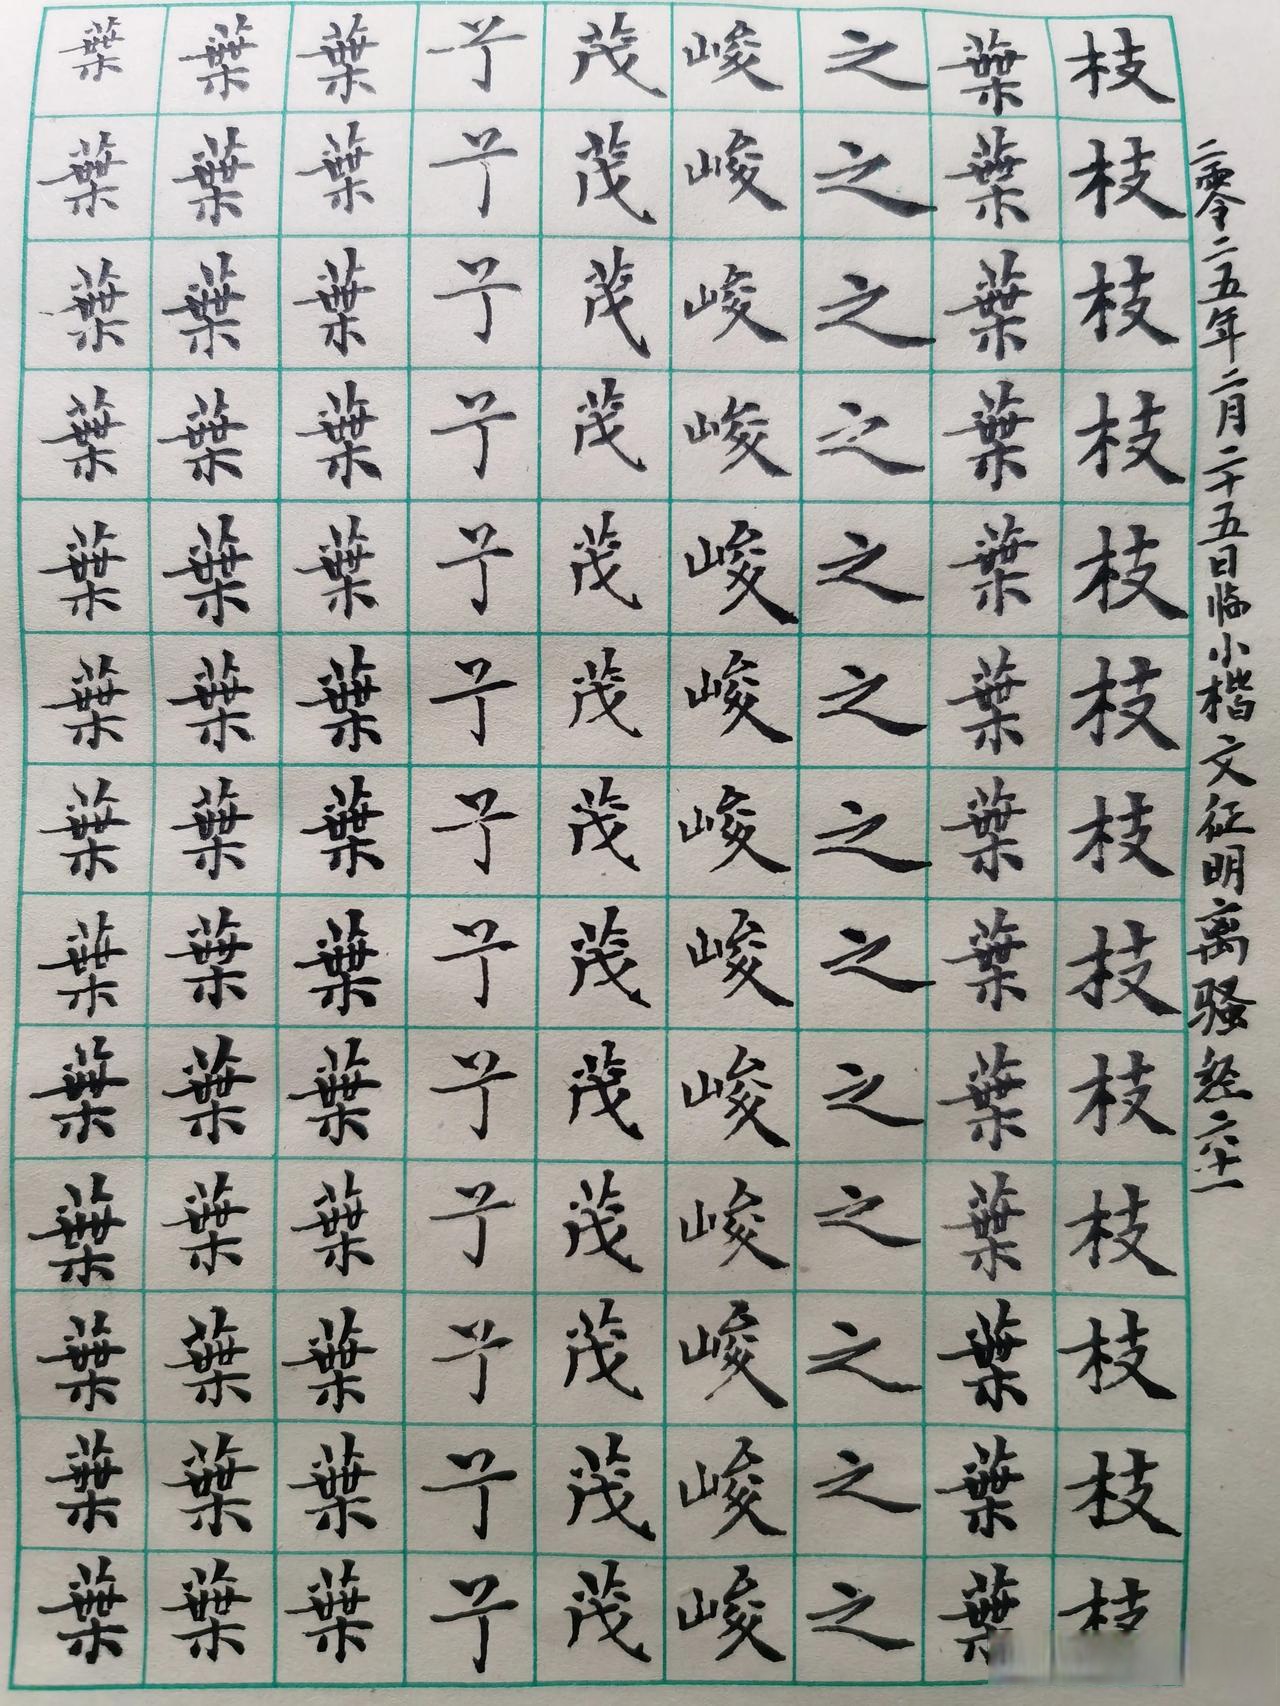 二零二五年二月二十五日临小楷文征明离骚经六十一
枝枝枝枝枝枝枝枝枝枝枝枝枝
葉葉葉葉葉葉葉葉葉葉葉葉葉
之之之之之之之之之之之之之
峻峻峻峻峻峻峻峻峻峻峻峻峻
茂茂茂茂茂茂茂茂茂茂茂茂茂
兮兮兮兮兮兮兮兮兮兮兮兮兮
葉葉葉葉葉葉葉葉葉葉葉葉葉
葉葉葉葉葉葉葉葉葉葉葉葉葉
葉葉葉葉葉葉葉葉葉葉葉葉葉